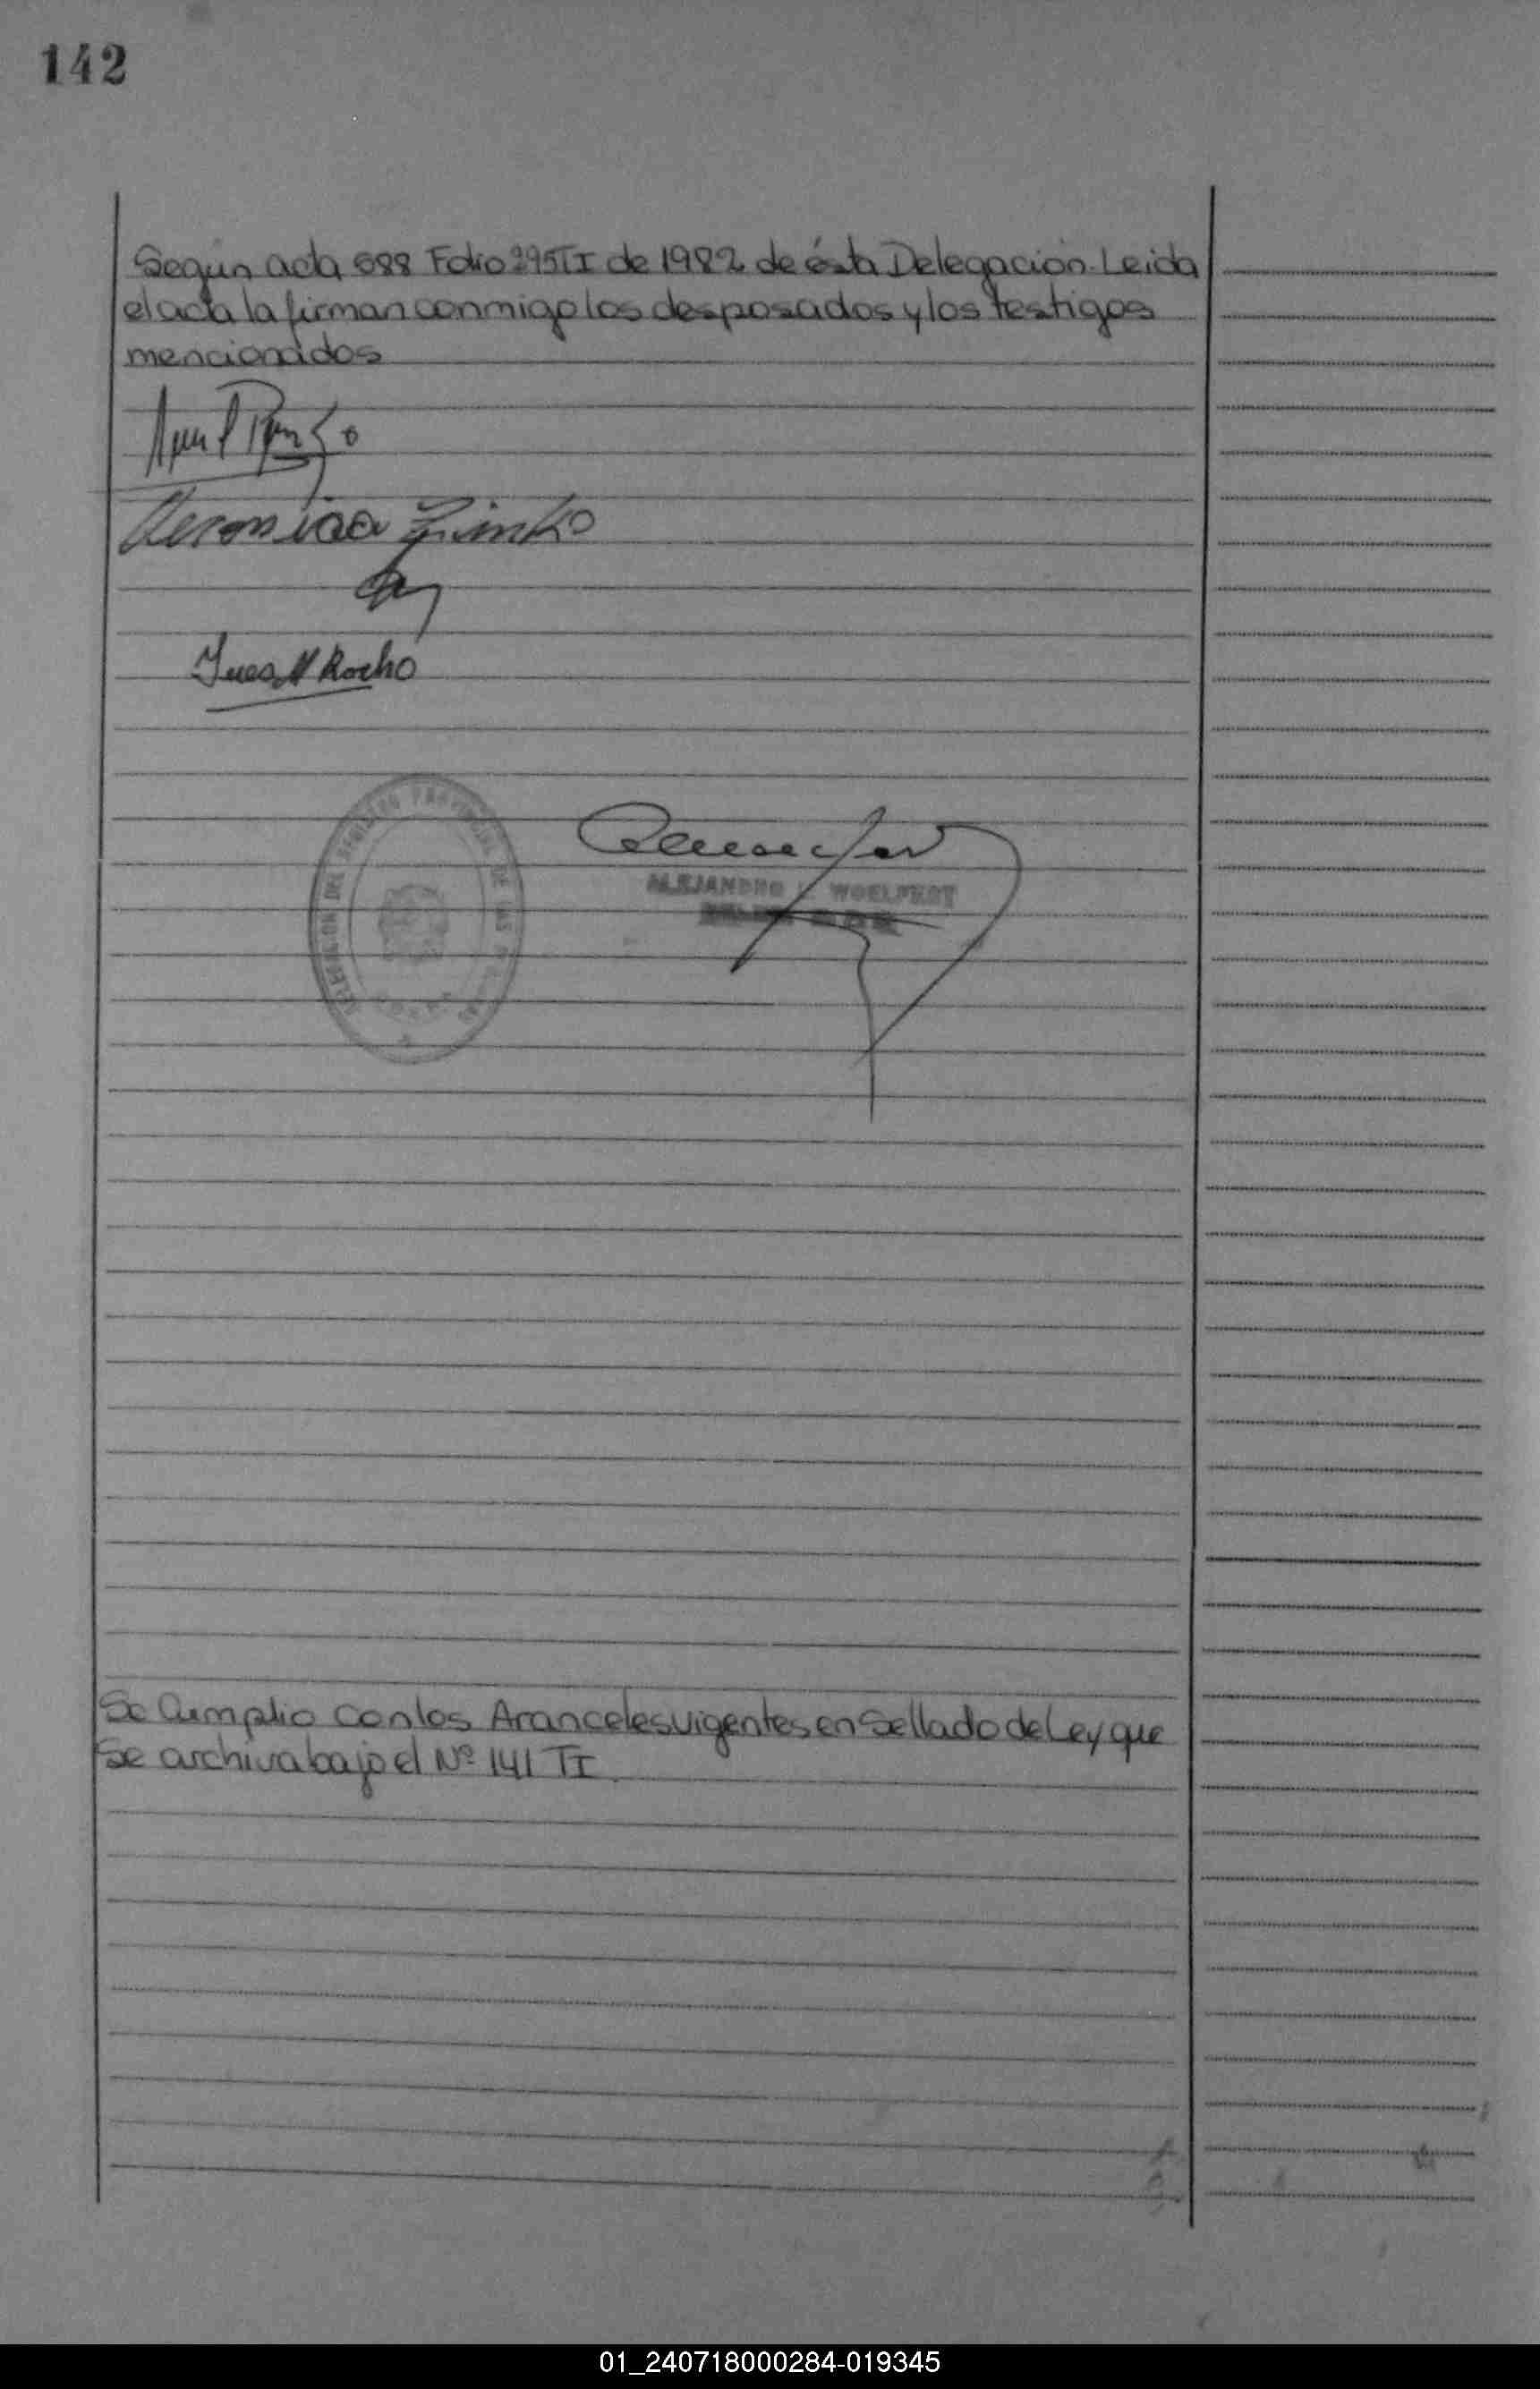 142
Segun acta 588 Folio 295 TI de 1982 de ésta Delegación. Leida
el acta la firman conmigo los desposados y los testigos
mencionados
Veronica
Ines N Rocho
DELEGACION DEL REGISTRO PROVINCIAL DE LAS
ALEJANDRO WOELFERT
Se Cumplio con los Aranceles vigentes en Sellado de Ley que
se archiva bajo el Nº 141 TI
01_240718000284-019345